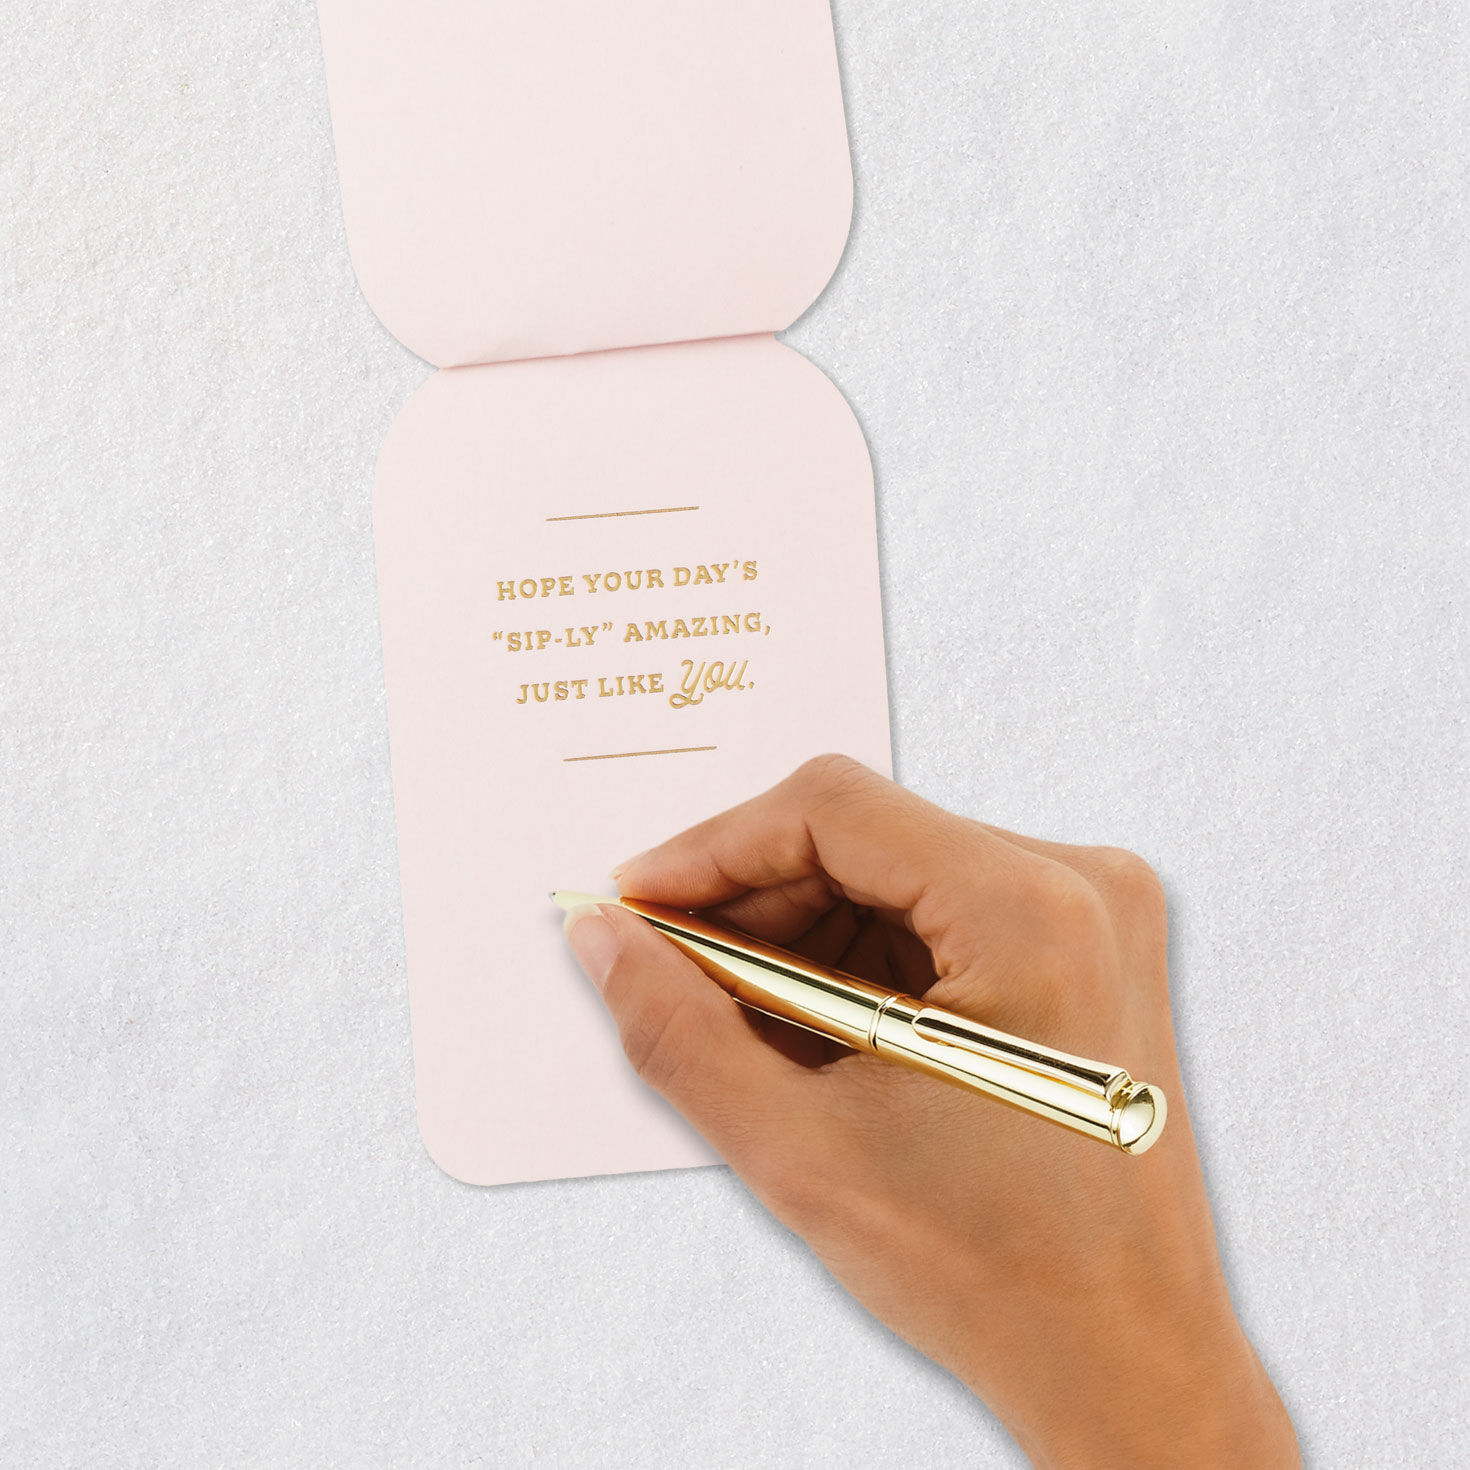 HOPE YOUR DAY'S
“SIP-LY” AMAZING,
JUST LIKE YOU.